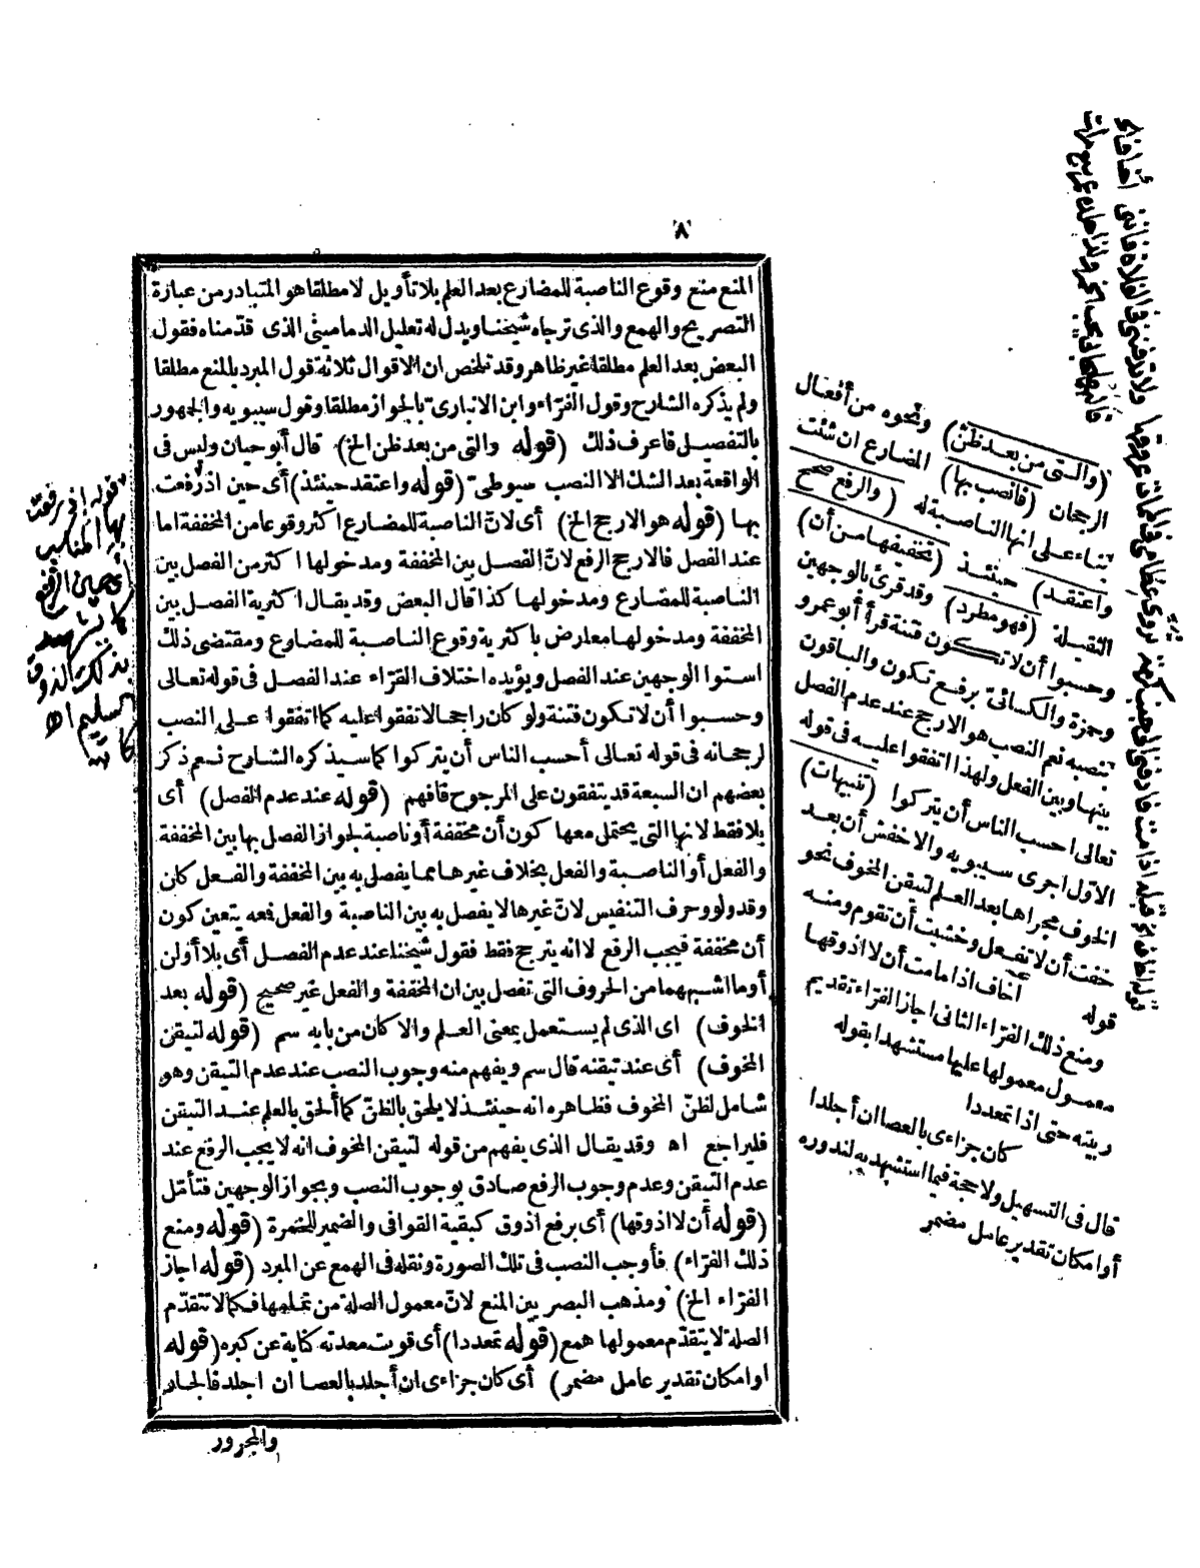 ٨
المنع منع وقوع الناصبة للمضارع بعد العلم بلا تأويل لا مطلقا هو المتبادر من عبارة
التصريح والهمع والذى ترجاه شيخنا ويدل له تعليل الدمامينى الذى قدمناه فقول
البعض بعد العلم مطلقا غير ظاهر وقد تلخص ان الاقوال ثلاثة قول المبرد بالمنع مطلقا
ولم يذكره الشارح وقول الفرّاء وابن الانبارىّ بالجواز مطلقا وقول سيبويه والجمهور
بالتفصيل فاعرف ذلك (قوله والتى من بعد ظن الخ) قال أبو حيان وليس فى
الواقعة بعد الشك الا النصب سيوطىّ (قوله واعتقد حينئذ) أى حين اذ رفعت
بها (قوله هو الارجح الخ) أى لانّ الناصبة للمضارع اكثر وقوعا من المخففة اما
عند الفصل فالارجح الرفع لانّ الفصل بين المخففة ومدخولها اكثر من الفصل بين
الناصبة للمضارع ومدخولها كذا قال البعض وقد يقال اكثرية الفصل بين
المخففة ومدخولها معارض باكثرية وقوع الناصبة للمضارع ومقتضى ذلك
استوا الوجهين عند الفصل ويؤيده اختلاف القرّاء عند الفصل فى قوله تعالى
وحسبوا أن لا تكون فتنة ولو كان راجحا لاتفقوا عليه كما اتفقوا على النصب
لرجحانه فى قوله تعالى أحسب الناس أن يتركوا كما سيذكره الشارح نعم ذكر
بعضهم ان السبعة قد يتفقون على المرجوح فافهم (قوله عند عدم الفصل) أى
بلا فقط لانها التى يحتمل معها كون أن مخففة أو ناصبة لجواز الفصل بها بين المخففة
والفعل أو الناصبة والفعل بخلاف غيرها مما يفصل به بين المخففة والفعل كان
وقد ولو وحرف التنفيس لانّ غيرها لا يفصل به بين الناصبة والفعل فعه يتعين كون
أن مخففة فيجب الرفع لا انه يترجح فقط فقول شيخنا عند عدم الفصل أى بلا أو لن
أو ما اشبههما من الحروف التى تفصل بين ان المخففة والفعل غير صحيح (قوله بعد
الخوف) اى الذى لم يستعمل بمعنى العلم والا كان من بابه سم (قوله لتيقن
المخوف) أى عند تيقنه قال سم ويفهم منه وجوب النصب عند عدم التيقن وهو
شامل لظنّ المخوف فظاهره انه حينئذ لا يلحق بالظنّ كما ألحق بالعلم عند التيقن
فليراجع اه وقد يقال الذى يفهم من قوله لتيقن المخوف انه لا يجب الرفع عند
عدم التيقن وعدم وجوب الرفع صادق بوجوب النصب وبجواز الوجهين فتأمّل
(قوله أن لا اذوقها) أى برفع اذوق كبقية القوافى والضمير للخمرة (قوله ومنع
ذلك الفرّاء) فأوجب النصب فى تلك الصورة ونقله فى الهمع عن المبرد (قوله اجاز
الفرّاء الخ) ومذهب البصريين المنع لانّ معمول الصلة من تمامها فكما لا تتقدّم
الصلة لا يتقدّم معمولها همع (قوله تمعددا) أى قويت معدته كناية عن كبره (قوله
او امكان تقدير عامل مضمر) أى كان جزاءى ان أجلد بالعصا ان اجلد فالجار
والمجرور
(والتى من بعد ظنّ) ونحوه من أفعال
الرجحان (فانصب بها) المضارع ان شئت
بناء على انها الناصبة له (والرفع صحح
واعتقد) حينئذ (تخفيفها من أن)
الثقيلة (فهو مطرد) وقد قرئ بالوجهين
وحسبوا أن لا تكون فتنة قرأ أبو عمرو
وحمزة والكسائىّ برفع تكون والباقون
بنصبه نعم النصب هو الارجح عند عدم الفصل
بينها وبين الفعل ولهذا اتفقوا عليه فى قوله
تعالى احسب الناس أن يتركوا (تنبيهات)
الاوّل اجرى سيبويه والاخفش أن بعد
الخوف مجراها بعد العلم لتيقن المخوف نحو
خفت أن لا تفعل وخشيت أن تقوم ومنه
قوله أخاف اذا ما مت أن لا اذوقها
ومنع ذلك الفرّاء الثانى اجاز الفرّاء تقديم
معمول معمولها عليها مستشهدا بقوله
ربيته حتى اذا تمعددا
كان جزاءى بالعصا ان أجلدا
قال فى التسهيل ولا حجة فيما استشهد به لندوره
أو امكان تقدير عامل مضمر
قوله إذ رفعت
بها المناسب
أى حين الرفع
كما يشهد
بذلك الذوق
السليم اه